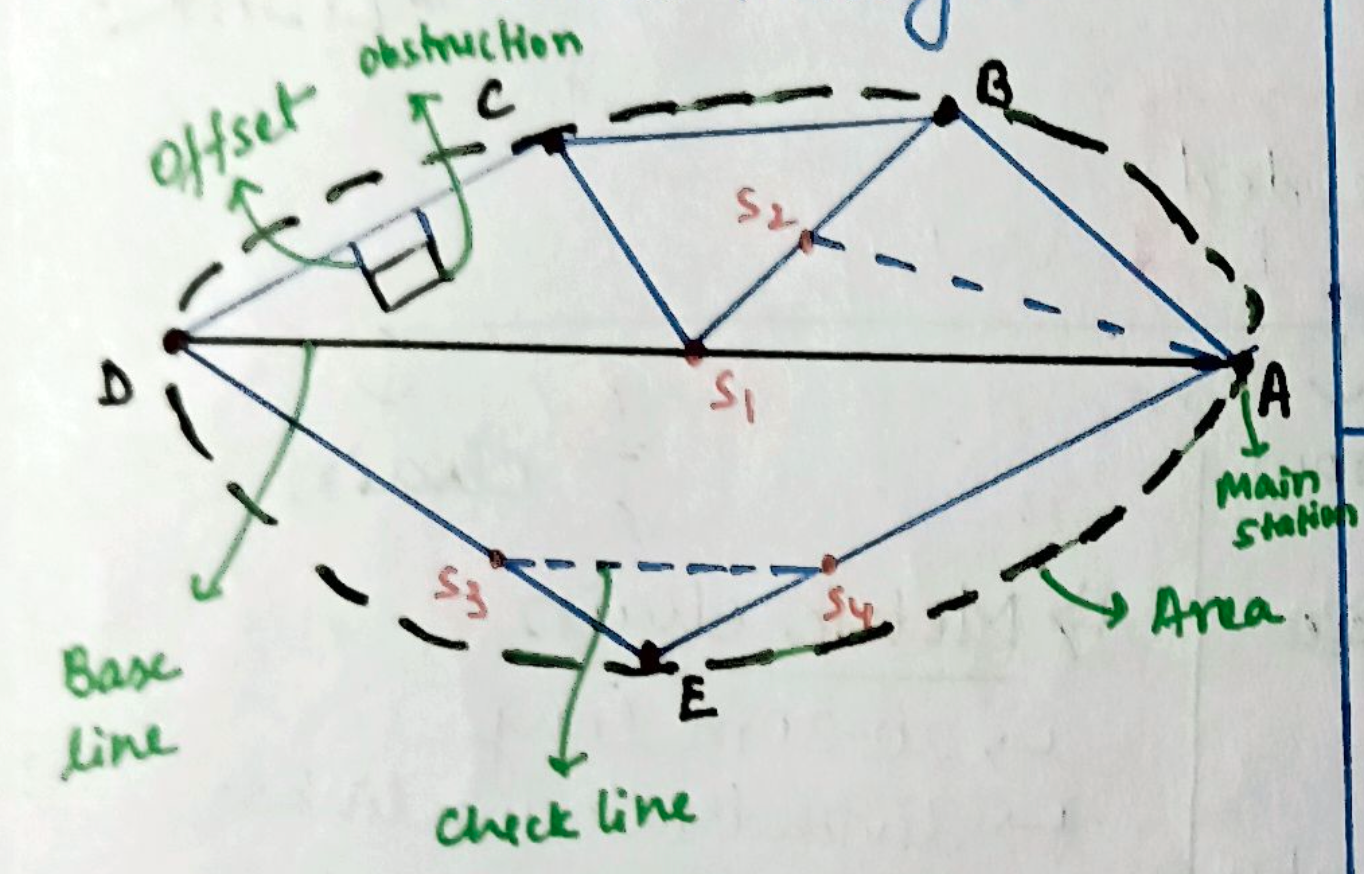 obstruction
C
B
Offset
S2
D
S1
A
Main
station
S3
S4
Area
Base
line
E
Check line